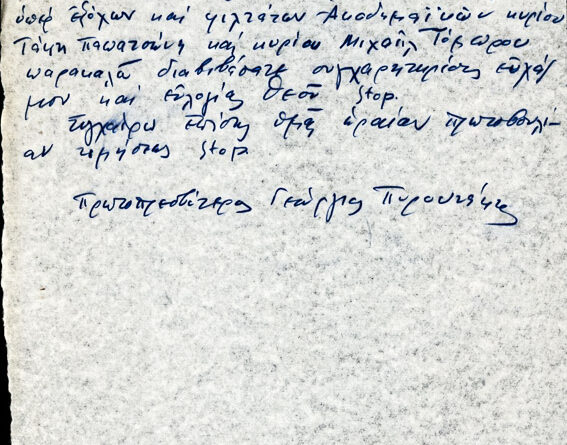 ὑπέρ ἐξόχων καί φιλτάτων Ἀκαδημαϊκῶν κυρίου
Τάκη Παπατσώνη καί κυρίου Μιχαήλ Τόμπρου
παρακαλῶ διαβιβάσατε συγχαρητηρίους εὐχάς
μου καί εὐλογίας Θεοῦ Stop.
Συγχαίρω ἐπίσης ὑμᾶς ὡραίαν πρωτοβουλί-
αν τιμήσατε Stop.
Πρωτοπρεσβύτερος Γεώργιος Πυρουνάκης